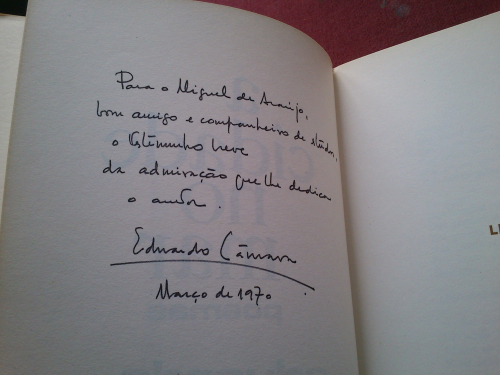 Para o Miguel de Araújo,
bom amigo e companheiro de estudos,
o testimunho breve
da admiração que lhe dedica
o autor.
Eduardo Câmara
Março de 1970